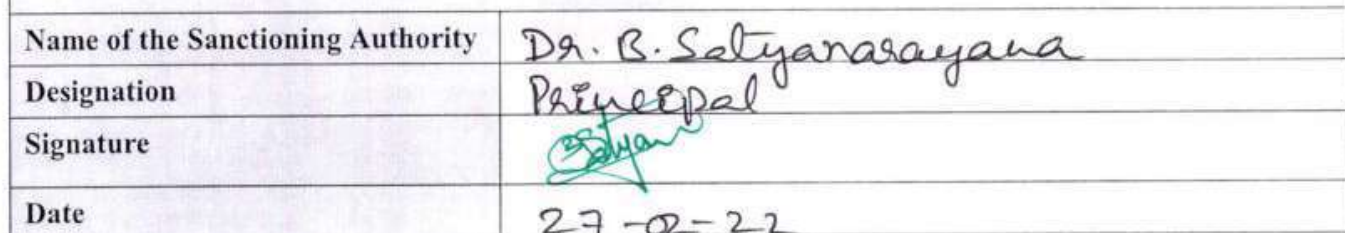 Name of the Sanctioning Authority Dr. B. Satyanarayana
Designation Principal
Signature
Date 27-02-22